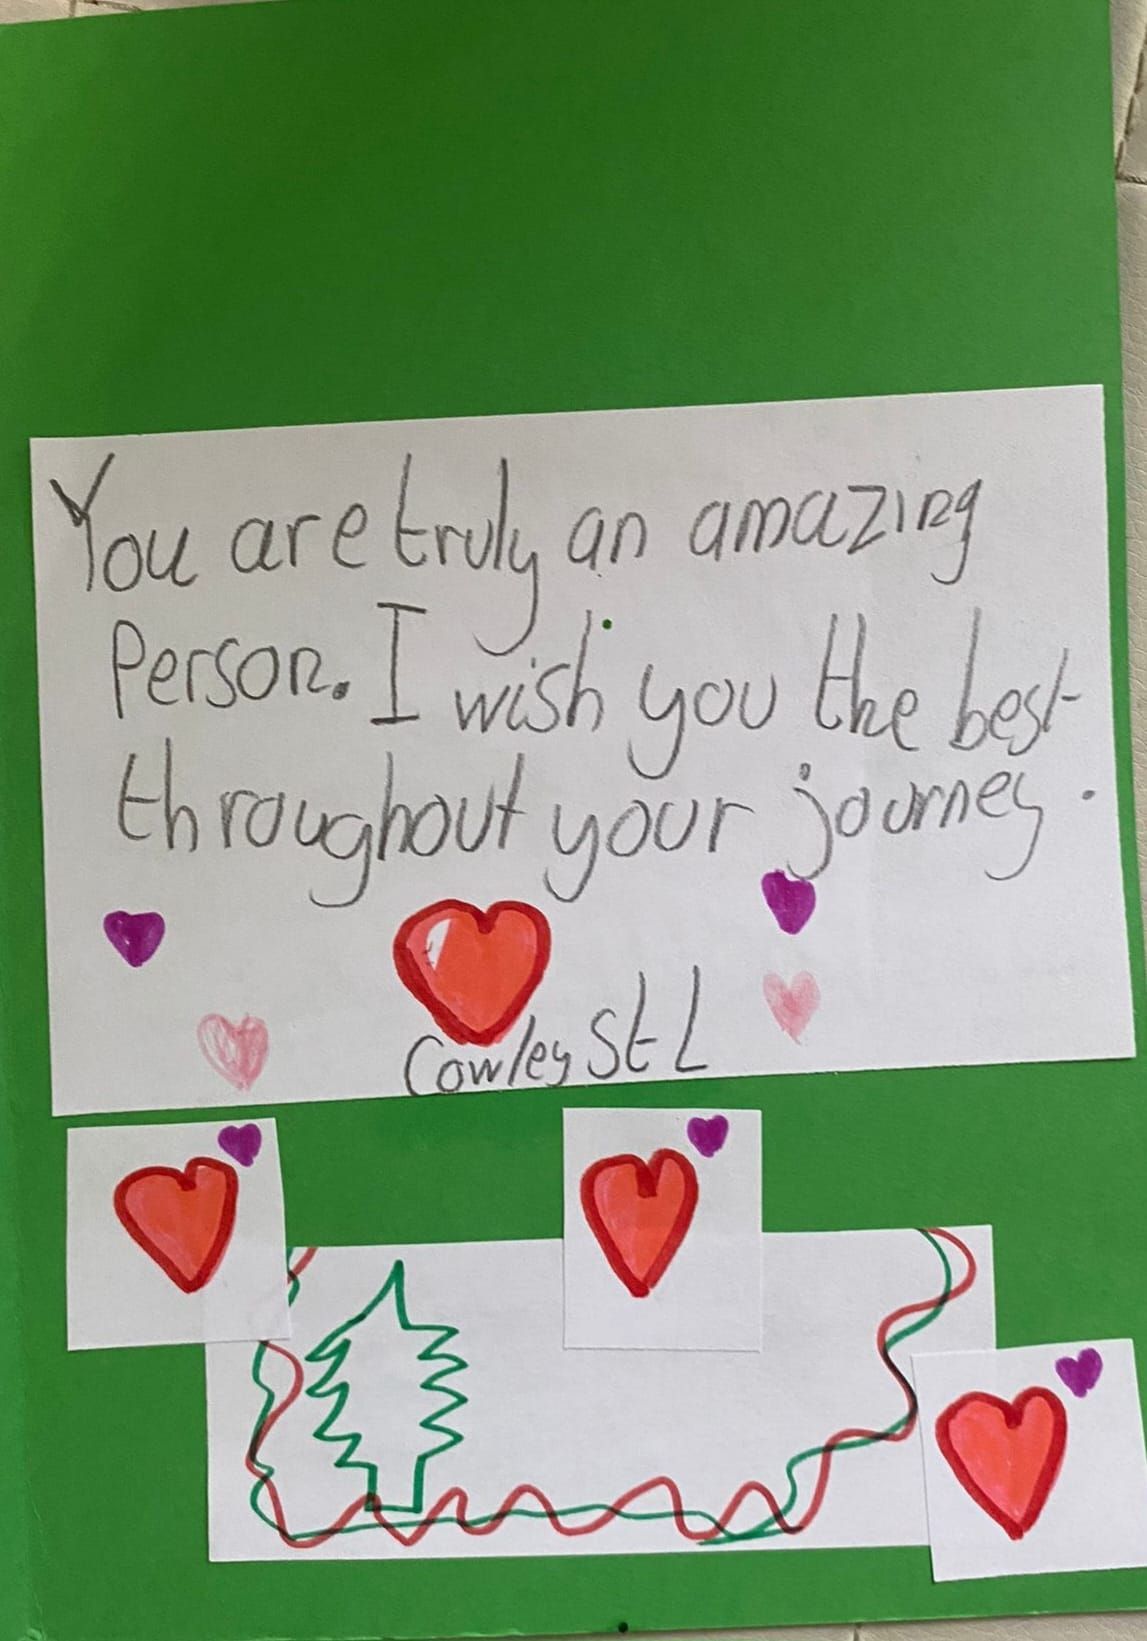 You are truly an amazing
Person. I wish you the best
throughout your journey.
Cowley St L